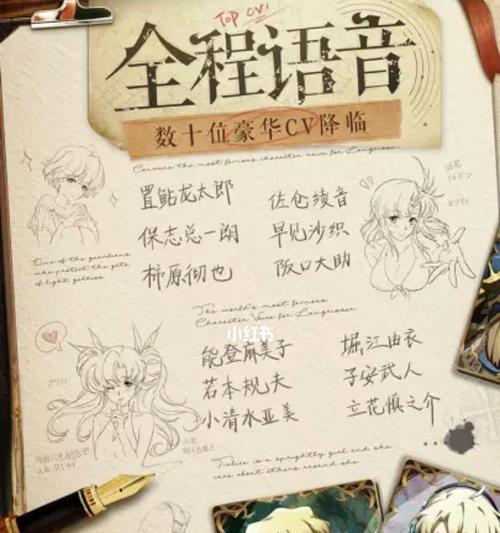 Top CV!
全程语音
数十位豪华CV降临
Convene the most famous character voice for Langrisser
置鲇龙太郎 佐仓绫音
保志总一朗 早见沙织
柿原彻也 阪口大助
One of the guardians
who protect the gate
of light goddess
The world's most famous
Character Voice for Langrisser
小红书
能登麻美子 堀江由衣
若本规夫 子安武人
小清水亚美 立花慎之介
is a uprightly girl and she
care about others around she